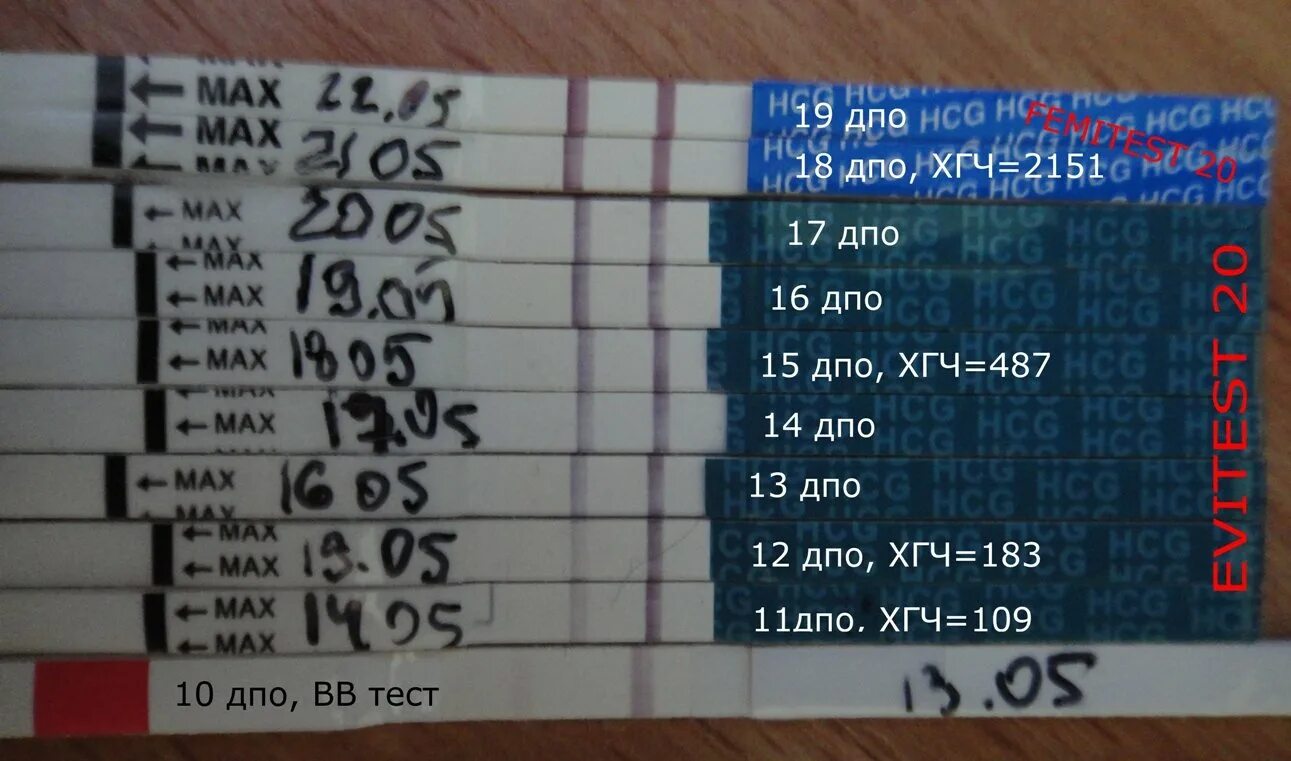 MAX 22.05 19 дпо
FEMITEST 20
MAX 21 05 18 дпо, ХГЧ=2151
MAX 20 05 17 дпо
MAX
MAX
MAX 19.05 16 дпо
MAX
MAX 18 05 15 дпо, ХГЧ=487
MAX
MAX 17.05 14 дпо
MAX 16 05 13 дпо
MAX
MAX
MAX 05 12 дпо, ХГЧ=183
MAX 14 05 11дпо, ХГЧ=109
MAX
EVITEST 20
10 дпо, ВВ тест 13.05
HCG HCG HCG HCG HCG HCG